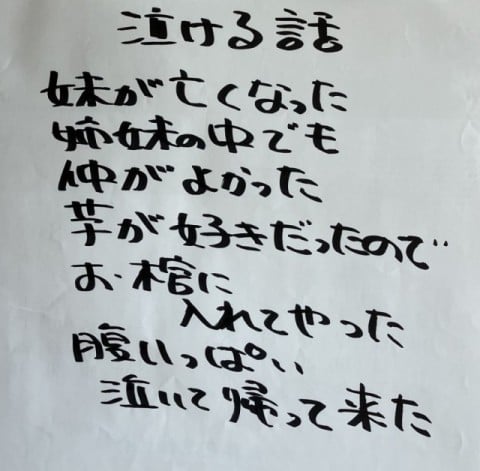 泣ける話
妹が亡くなった
姉妹の中でも
仲がよかった
芋が好きだったので
お棺に
入れてやった
腹いっぱい
泣いて帰って来た